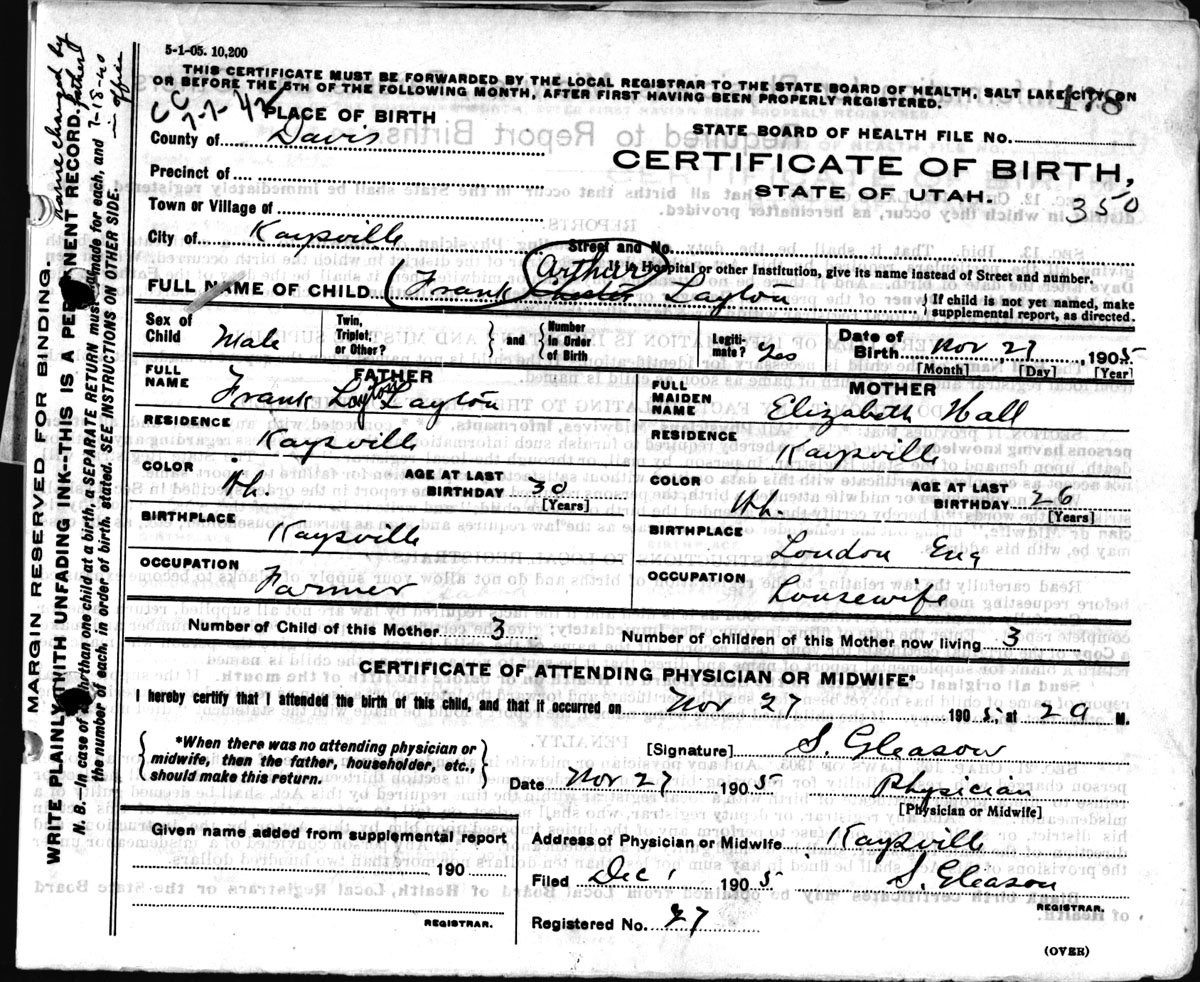 5-1-05. 10,200
THIS CERTIFICATE MUST BE FORWARDED BY THE LOCAL REGISTRAR TO THE STATE BOARD OF HEALTH, SALT LAKE CITY, ON
OR BEFORE THE 5TH OF THE FOLLOWING MONTH, AFTER FIRST HAVING BEEN PROPERLY REGISTERED.
178
CC 7-7-42
PLACE OF BIRTH
County of Davis
STATE BOARD OF HEALTH FILE NO.
CERTIFICATE OF BIRTH,
STATE OF UTAH.
350
Precinct of
Town or Village of
City of Kaysville
Street and No.
If in Hospital or other Institution, give its name instead of Street and number.
Arthur
FULL NAME OF CHILD Frank Chester Layton
If child is not yet named, make
supplemental report, as directed.
Sex of Child Male
Twin, Triplet, or Other?
and
Number in Order of Birth
Legitimate? Yes
Date of Birth Nov 27, 1905
[Month] [Day] [Year]
FATHER
FULL NAME Frank Layton Layton
RESIDENCE Kaysville
COLOR Wh.
AGE AT LAST BIRTHDAY 30
[Years]
BIRTHPLACE Kaysville
OCCUPATION Farmer
MOTHER
FULL MAIDEN NAME Elizabeth Hall
RESIDENCE Kaysville
COLOR Wh.
AGE AT LAST BIRTHDAY 26
[Years]
BIRTHPLACE London Eng
OCCUPATION Housewife
Number of Child of this Mother 3
Number of children of this Mother now living 3
CERTIFICATE OF ATTENDING PHYSICIAN OR MIDWIFE*
I hereby certify that I attended the birth of this child, and that it occurred on Nov 27 1905, at 2 a M.
*When there was no attending physician or
midwife, then the father, householder, etc.,
should make this return.
[Signature] S. Gleason
Date Nov 27 1905
Physician
[Physician or Midwife]
Given name added from supplemental report
190
REGISTRAR.
Address of Physician or Midwife Kaysville
Filed Dec 1 1905
S. Gleason
REGISTRAR.
Registered No. 27
(OVER)
MARGIN RESERVED FOR BINDING.
WRITE PLAINLY WITH UNFADING INK—THIS IS A PERMANENT RECORD.
N. B.—In case of more than one child at a birth, a SEPARATE RETURN must be made for each, and
the number of each, in order of birth, stated. SEE INSTRUCTIONS ON OTHER SIDE.
name changed by
father
7-18-40
in office